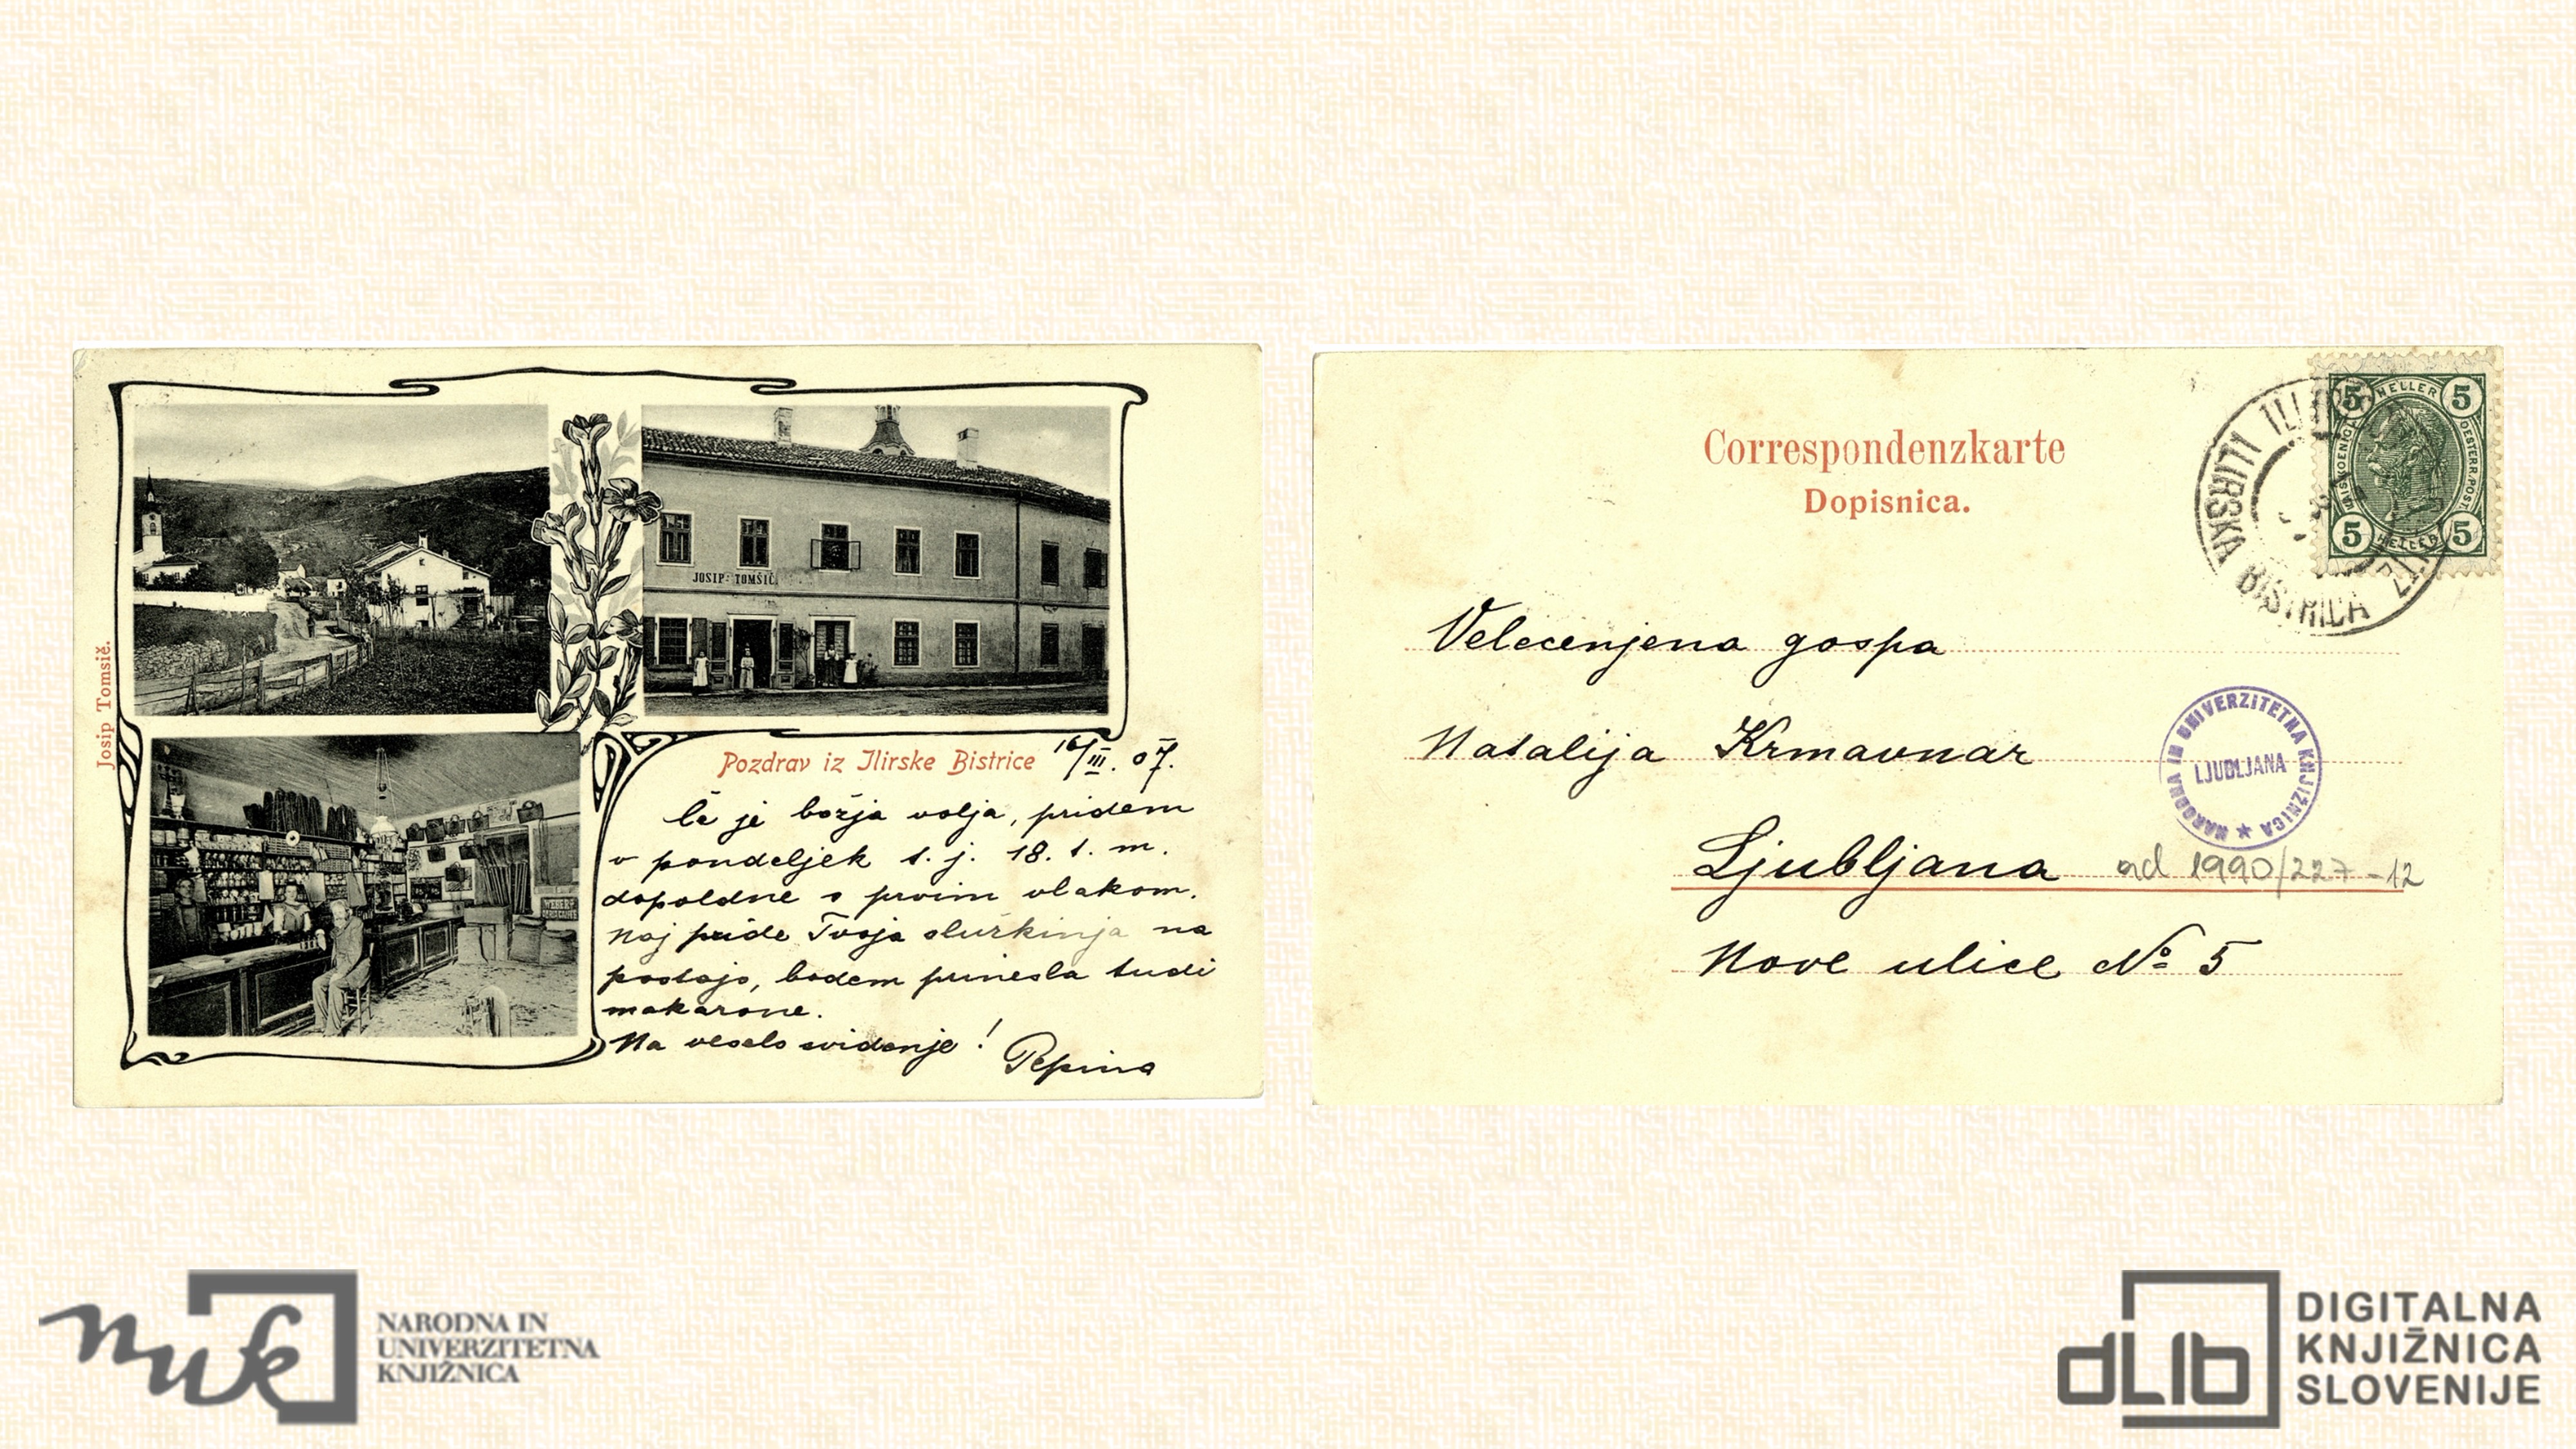 Josip Tomsič.
JOSIP: TOMŠIČ.
Pozdrav iz Ilirske Bistrice 16/III. 07.
Če je božja volja, pridem
v pondeljek t. j. 18. t. m.
dopoldne s prvim vlakom.
Naj pride Tvoja služkinja na
postajo, bodem prinesla tudi
makarone.
Na veselo svidenje!
Pepina
Correspondenzkarte
Dopisnica.
5 HELLER 5
WIR SKOENIGL OESTERR.POST.
5 HELLER 5
ILIRSKA BISTRICA
Velecenjena gospa
Natalija Krmavnar
NARODNA IN UNIVERZITETNA KNJIŽNICA
LJUBLJANA
Ljubljana ad 1990/227-12
Nove ulice No 5
nuk
NARODNA IN
UNIVERZITETNA
KNJIŽNICA
dLib
DIGITALNA
KNJIŽNICA
SLOVENIJE